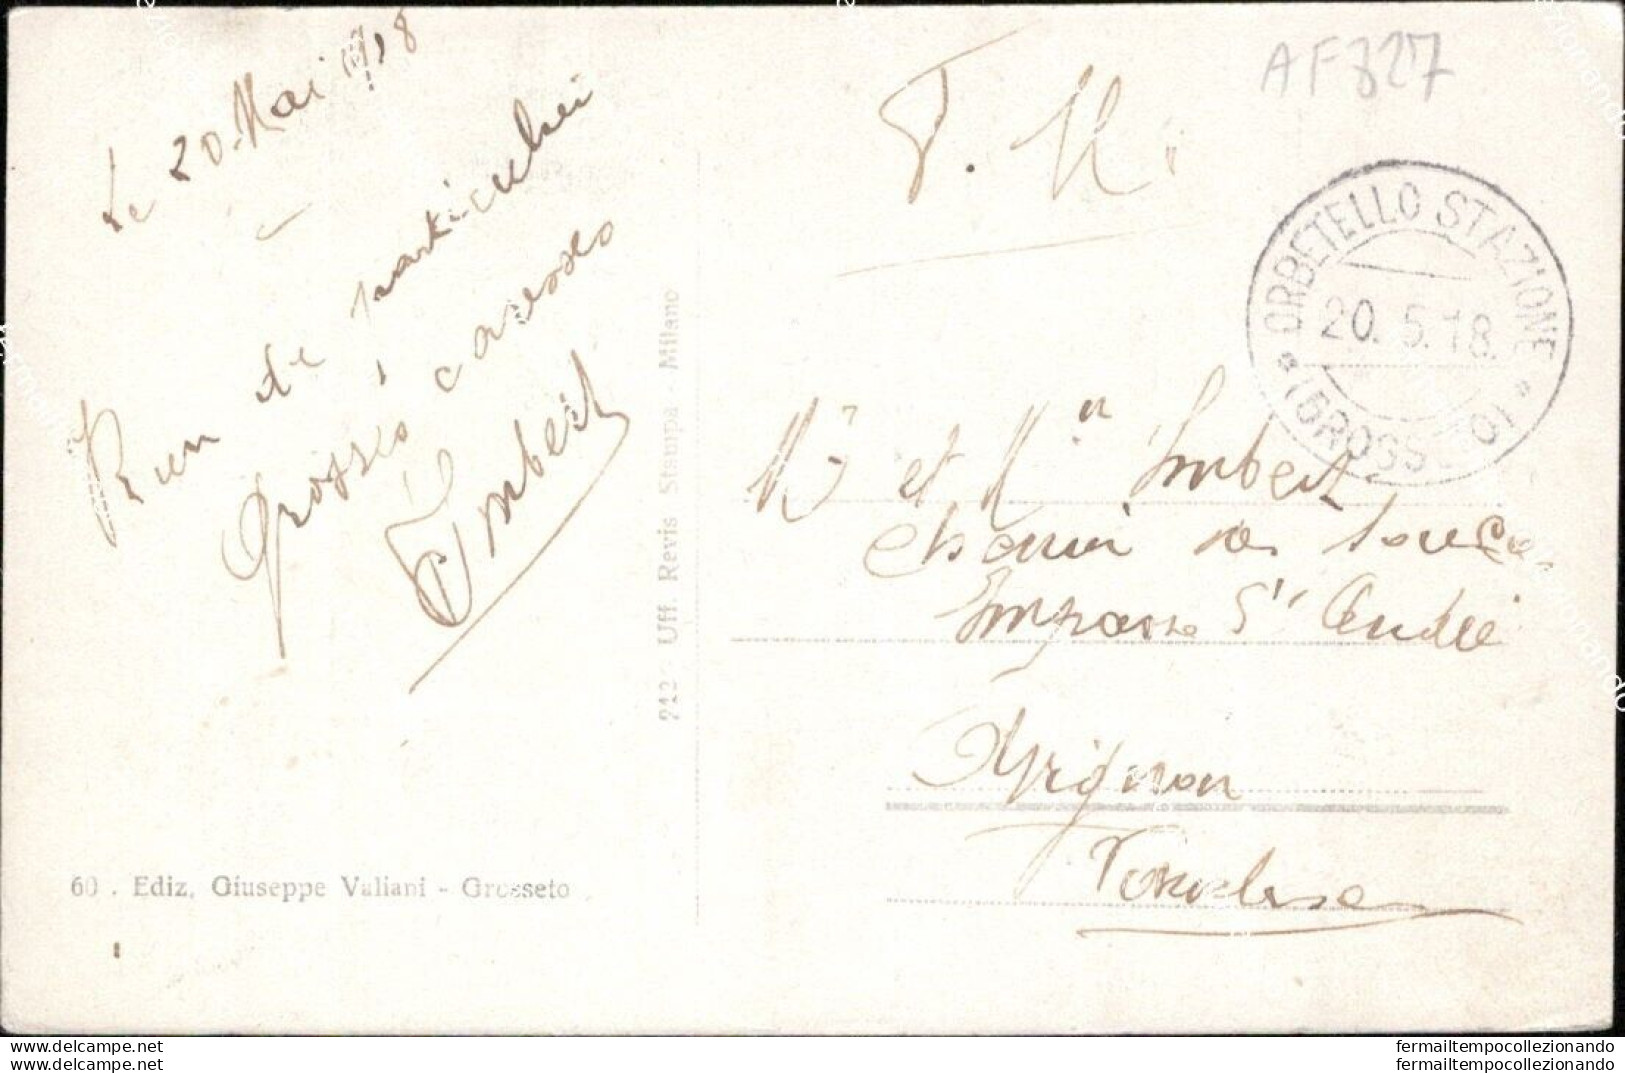 AF827
Le 20 Mai 1918
F. M.
ORBETELLO STAZIONE
20. 5. 18.
(GROSSETO)
Rien de particulier
Grosses caresses
Imbert
Mr et Mme Imbert
chemin des
Impasse St André
Avignon
Vaucluse
Uff. Revis Stampa - Milano
60 . Ediz. Giuseppe Valiani - Grosseto
www.delcampe.net
fermailtempocollezionando
www.delcampe.net
fermailtempocollezionando